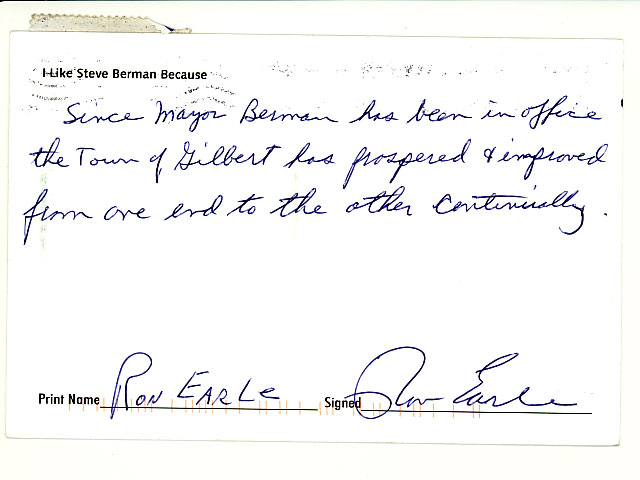 I Like Steve Berman Because
Since Mayor Berman has been in office
the Town of Gilbert has prospered & improved
from one end to the other continually.
Print Name RON EARLE Signed Ron Earle